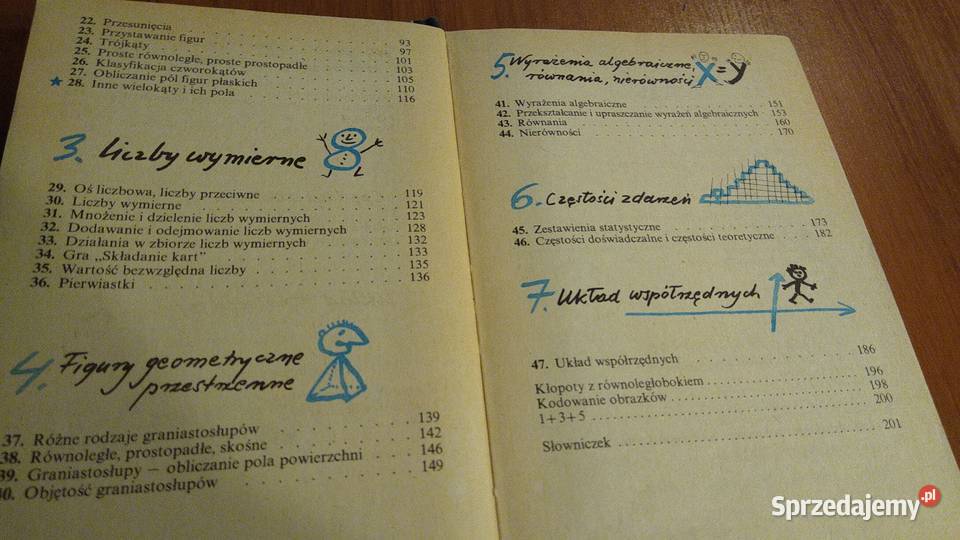 22. Przesunięcia 93
23. Przystawanie figur 97
24. Trójkąty 101
25. Proste równoległe, proste prostopadłe 103
26. Klasyfikacja czworokątów 105
27. Obliczanie pól figur płaskich 110
★ 28. Inne wielokąty i ich pola 116
3. Liczby wymierne
29. Oś liczbowa, liczby przeciwne 119
30. Liczby wymierne 121
31. Mnożenie i dzielenie liczb wymiernych 123
32. Dodawanie i odejmowanie liczb wymiernych 128
33. Działania w zbiorze liczb wymiernych 132
34. Gra „Składanie kart” 133
35. Wartość bezwzględna liczby 135
36. Pierwiastki 136
4. Figury geometryczne
przestrzenne
37. Różne rodzaje graniastosłupów 139
38. Równoległe, prostopadłe, skośne 142
39. Graniastosłupy — obliczanie pola powierzchni 146
40. Objętość graniastosłupów 149
5. Wyrażenia algebraiczne,
równania, nierówności x=y
41. Wyrażenia algebraiczne 151
42. Przekształcanie i upraszczanie wyrażeń algebraicznych 153
43. Równania 160
44. Nierówności 170
6. Częstości zdarzeń
45. Zestawienia statystyczne 173
46. Częstości doświadczalne i częstości teoretyczne 182
7. Układ współrzędnych
47. Układ współrzędnych 186
Kłopoty z równoległobokiem 196
Kodowanie obrazków 198
1+3+5 200
Słowniczek 201
Sprzedajemy.pl